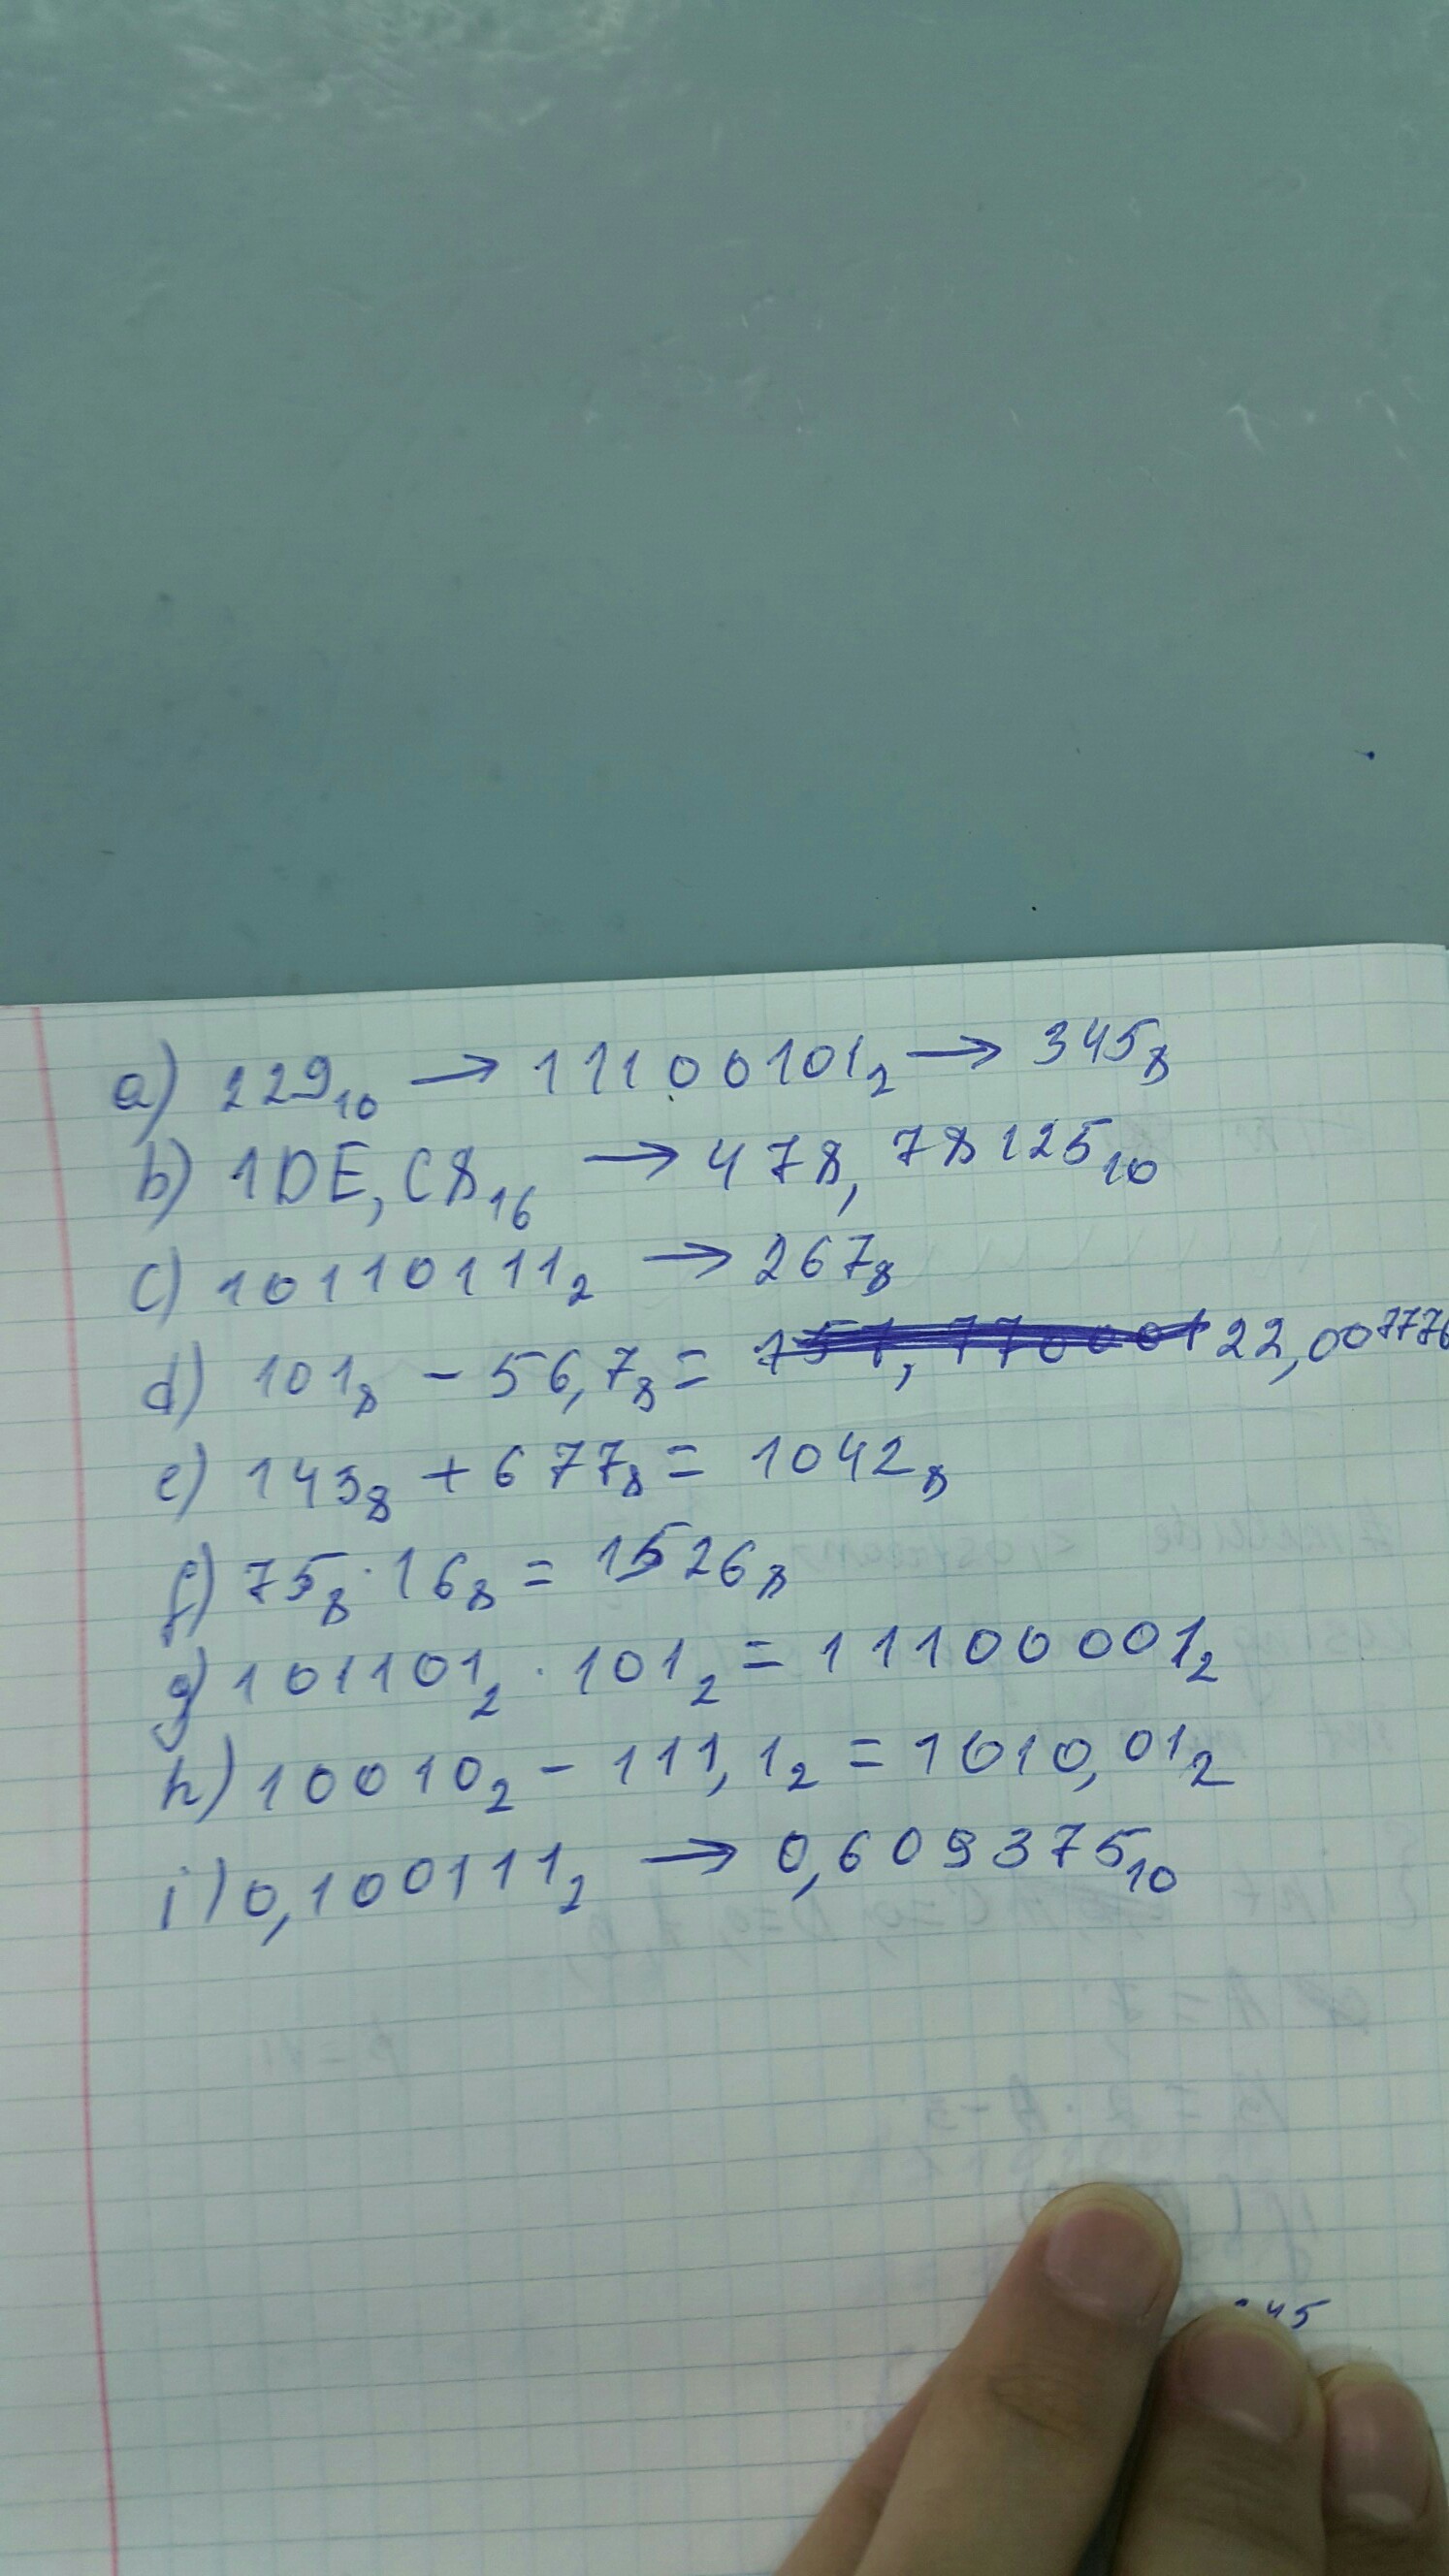 a) 229₁₀ → 11100101₂ → 345₈
b) 1DE,C8₁₆ → 478,78125₁₀
c) 10110111₂ → 267₈
d) 101₈ - 56,7₈ = 22,007776
e) 143₈ + 677₈ = 1042₈
f) 75₈ · 16₈ = 1526₈
g) 101101₂ · 101₂ = 11100001₂
h) 10010₂ - 111,1₂ = 1010,01₂
i) 0,100111₂ → 0,609375₁₀
45